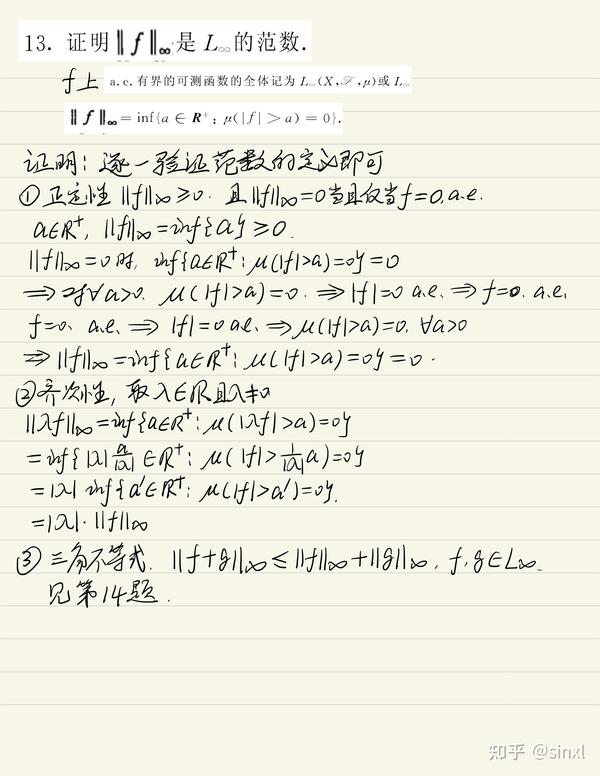 13. 证明‖f‖∞是 L∞的范数.
f上 a.e.有界的可测函数的全体记为 L∞(X,ℱ,μ)或 L∞
‖f‖∞=inf{a∈R⁺:μ(|f|>a)=0}.
证明:逐一验证范数的定义即可
①正定性 ‖f‖∞≥0. 且‖f‖∞=0当且仅当f=0,a.e.
a∈R⁺, ‖f‖∞=inf{a}≥0.
‖f‖∞=0时, inf{a∈R⁺:μ(|f|>a)=0}=0
⇒对∀a>0. μ(|f|>a)=0. ⇒|f|=0 a.e. ⇒f=0. a.e.
f=0. a.e. ⇒ |f|=0 a.e. ⇒μ(|f|>a)=0, ∀a>0
⇒‖f‖∞=inf{a∈R⁺:μ(|f|>a)=0}=0.
②齐次性, 取λ∈R且λ≠0
‖λf‖∞=inf{a∈R⁺:μ(|λf|>a)=0}
=inf{|λ| a/|λ| ∈R⁺: μ(|f|>1/|λ| a)=0}
=|λ| inf{a'∈R⁺:μ(|f|>a')=0}.
=|λ|·‖f‖∞
③三角不等式. ‖f+g‖∞≤‖f‖∞+‖g‖∞. f,g∈L∞.
见第14题.
知乎 @sinxl